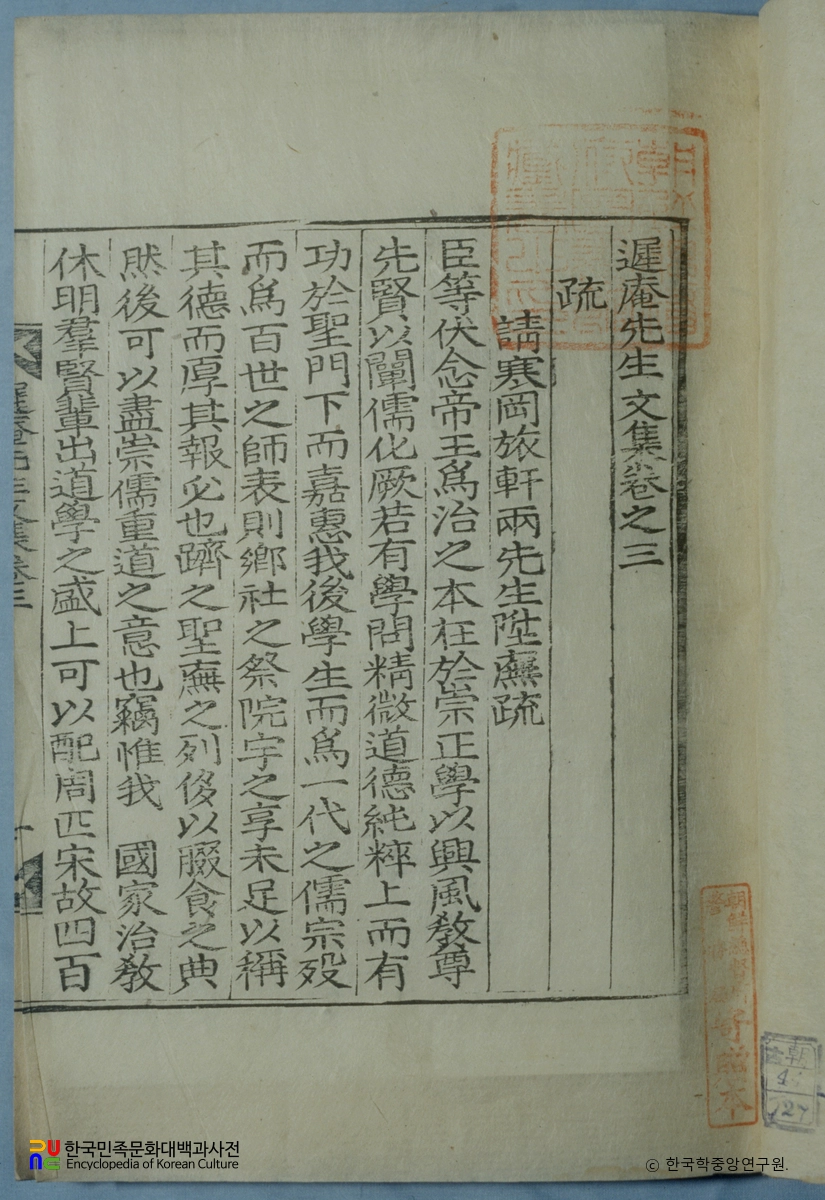 遲庵先生文集卷之三
疏
請寒岡旅軒兩先生陞廡疏
臣等伏念帝王爲治之本在於崇正學以興風敎尊
先賢以闡儒化厥若有學問精微道德純粹上而有
功於聖門下而嘉惠我後學生而爲一代之儒宗殁
而爲百世之師表則鄕社之祭院宇之享未足以稱
其德而厚其報必也躋之聖廡之列侈以腏食之典
然後可以盡崇儒重道之意也竊惟我 國家治敎
休明羣賢輩出道學之盛上可以配周匹宋故四百
朝鮮
寄贈本
朝
한국민족문화대백과사전
Encyclopedia of Korean Culture
© 한국학중앙연구원.